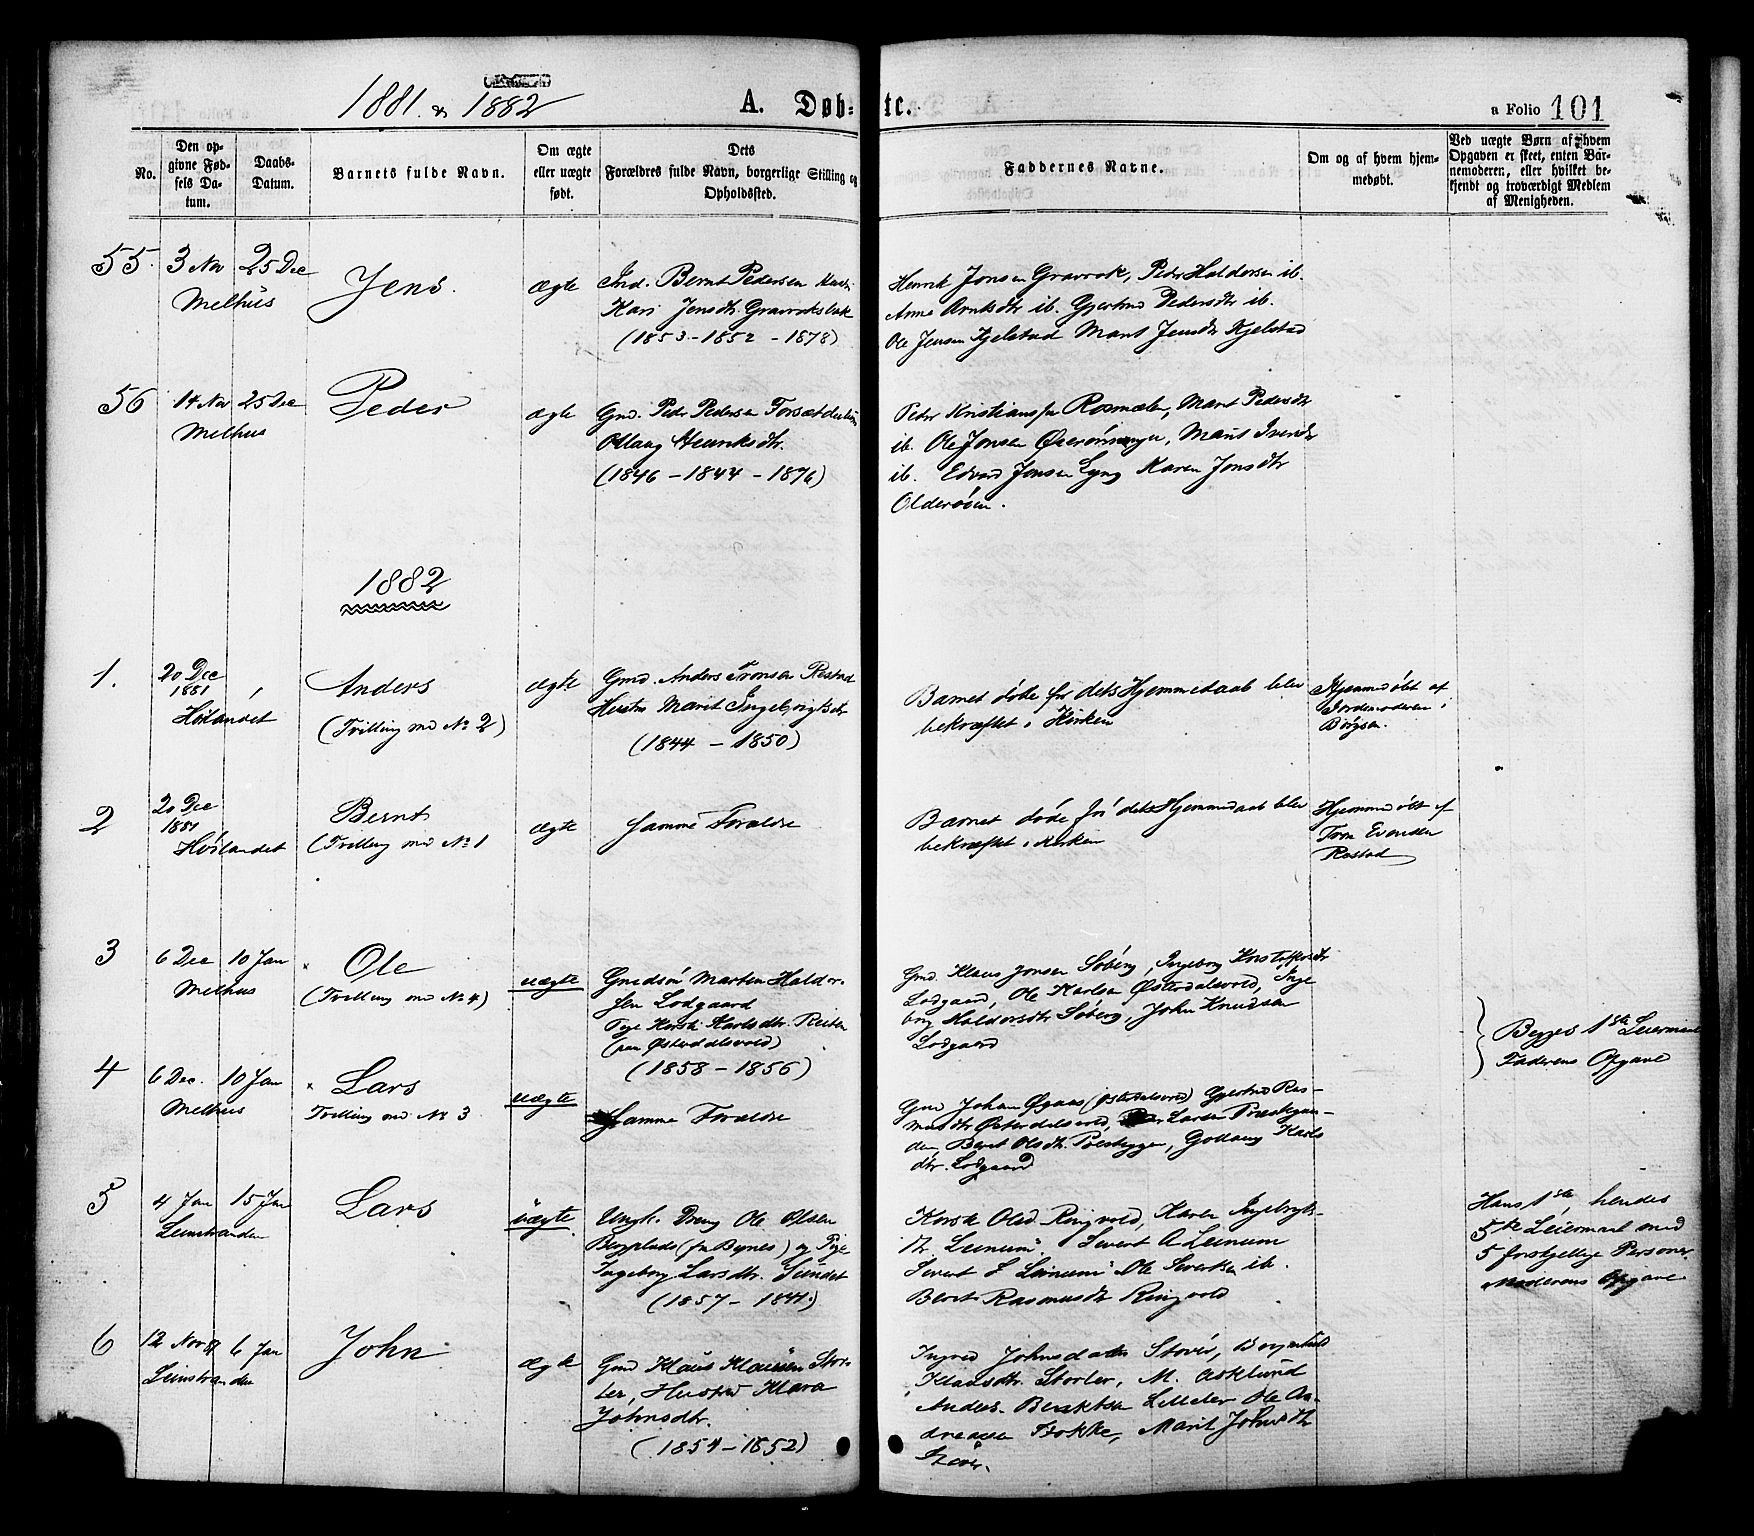 1881. & 1882
A. Døb-
te.
a Folio 101
No.
Den op-
givne Fød-
sels Da-
tum.
Daabs-
Datum.
Barnets fulde Navn.
Om ægte
eller uægte
født.
Dets
Forældres fulde Navn, borgerlige Stilling og
Opholdssted.
Faddernes Navne.
Om og af hvem hjem-
medøbt.
Ved uægte Børn af hvem
Opgaven er skeet, enten Bar-
nemoderen, eller hvilket be-
kjendt og troværdigt Medlem
af Menigheden.
55. 3 Nov 25 Dec
Melhus
Jens.
ægte
Ind. Bernt Pedersen
Kari Jensdtr. Gravraksbak
(1853-1852-1878)
Henrik Jonsen Gravrak, Peder Haldorsen ib.
Anne Arntsdtr ib. Gjertrud Pedersdtr ib.
Ole Jensen Kjelstad Marit Jensdtr Kjelstad
56 14 Nov 25 Dec
Melhus
Peder
ægte
Gmd. Peder Pedersen
Henriksdtr.
(1846-1844-1876)
Peder Kristiansen Rosmælen, Marit Pedersdtr
ib. Ole Jonsen Marit Iversdtr
ib. Edvard Jonsen Lyng Karen Jonsdtr
Olderøien.
1882
1. 20 Dec
1881
Høilandet
Anders
(Tvilling med No 2)
ægte
Gmd. Anders Tronsen Rostad
Hustru Marit Ingebrigtsdtr
(1844-1850)
Barnet døde før dets Hjemmedaab blev
bekræftet i Kirken
Hjemmedøbt af
Jordemoderen i
Børgsen.
2 20 Dec
1881
Høilandet
Bernt
(Tvilling med No 1
ægte
Samme Forældre
Barnet døde før dets Hjemmedaab blev
bekræftet i Kirken
Hjemmedøbt af
Tron Evensen
Rostad
3 6 Dec 10 Jan
Melhus
Ole
(Tvilling med No 4)
uægte
Gmdsøn Morten Haldor-
sen Lodgaard
Pige Karlsdtr. Reiten
(paa Østerdalsvold)
(1858-1856)
Gmd. Klaus Jonsen Søberg, Ingeborg Kristoffersdtr
Lodgaard, Ole Karlsen Østerdalsvold, Inge
borg Haldorsdtr Søberg, John Knudsen
Lodgaard
Begges 1ste Leiermaal
Faderens Opgave
4 6 Dec. 10 Jan
Melhus
Lars
Tvilling med No 3
uægte
Samme Forældre
Gmd Johan Øgaas (Østerdalsvold) Gjertrud Ras-
musdtr Østerdalsvold, Larsen Præstegaar-
den, Berit Olsdtr. Præstegge, Gollaug Karls
dtr. Lodgaard
5 4 Jan 15 Jan
Leinstranden
Lars
uægte
Ungk. Dreng Ole Olsen
Bergplads (fra Bynes) og Pige
Ingeborg Larsdtr. Sundet
(1857-1841)
Olsd. Ringvold, Karen Ingebrigts-
dtr Leinum. Sivert A Leinum
Sivert L Leinum Ole Sivertsen ib.
Berit Rasmusdtr Ringvold
Hans 1ste, hendes
5te Leiermaal med
5 forskjellige Personer
Moderens Opgave
6 12 Nov 81 6 Jan
Leinstranden
John
ægte
Gmd Klaus Klausen Stor-
ler, Hustru Klara
Johnsdtr.
(1854-1852)
Ingred Johnsdatter Støver,
Klausdtr. Storler, M. Asklund
Anders Lilleler Ole An-
dreassen Flokke, Marit Johnsdtr
Støver.